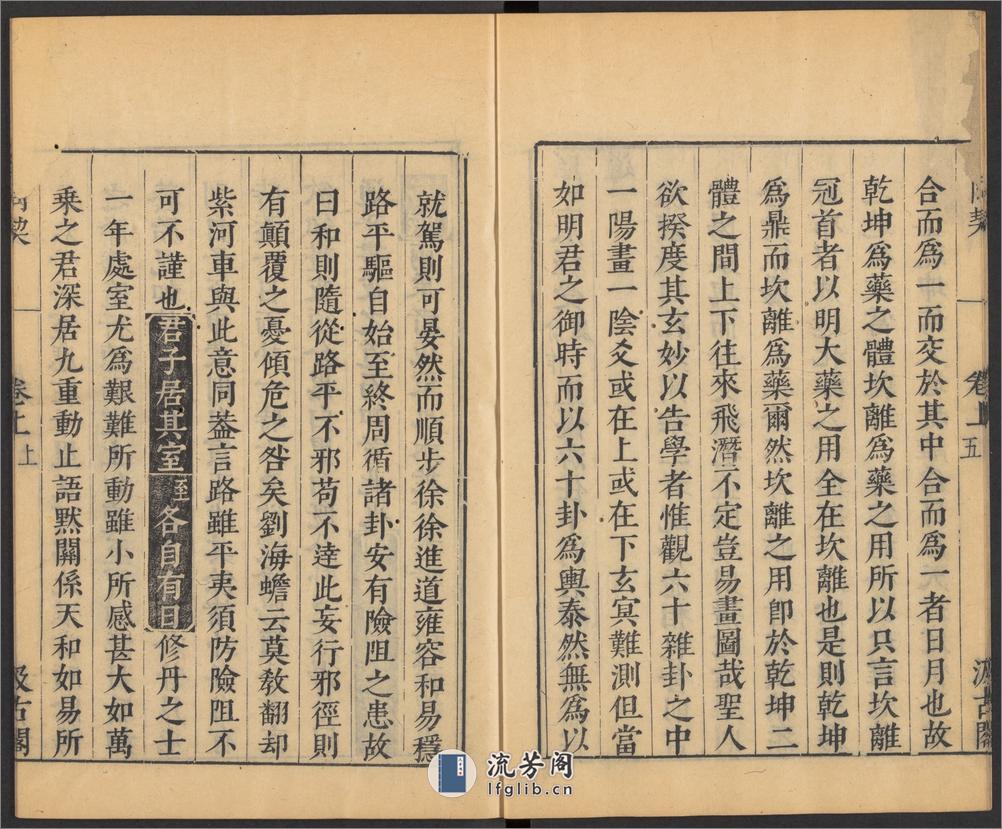 合而爲一而交於其中合而爲一者日月也故
乾坤爲藥之體坎離爲藥之用所以只言坎離
冠首者以明大藥之用全在坎離也是則乾坤
爲鼎而坎離爲藥爾然坎離之用卽於乾坤二
體之間上下往來飛潛不定豈易畫圖哉聖人
欲揆度其玄妙以告學者惟觀六十雜卦之中
一陽畫一陰爻或在上或在下玄冥難測但當
如明君之御時而以六十卦爲輿泰然無爲以
卷上
五
汲古閣
就駕則可晏然而順步徐徐進道雍容和易穩
路平驅自始至終周循諸卦安有險阻之患故
曰和則隨從路平不邪苟不達此妄行邪徑則
有顛覆之憂傾危之咎矣劉海蟾云莫教翻却
紫河車與此意同蓋言路雖平夷須防險阻不
可不謹也君子居其室至各自有日修丹之士
一年處室尤爲艱難所動雖小所感甚大如萬
乘之君深居九重動止語默關係天和如易所
契
卷上
汲古閣
流芳阁
lfglib.cn